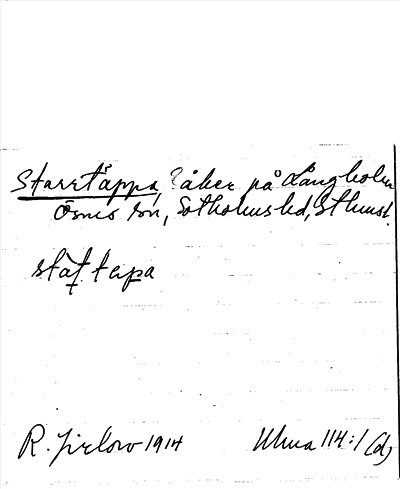 Starrtäppa, ? åker på Långholm
Ösmo sn, Sotholms hd, Sthms l.
R. Jirlow 1914 Ulma 114:1 (d)